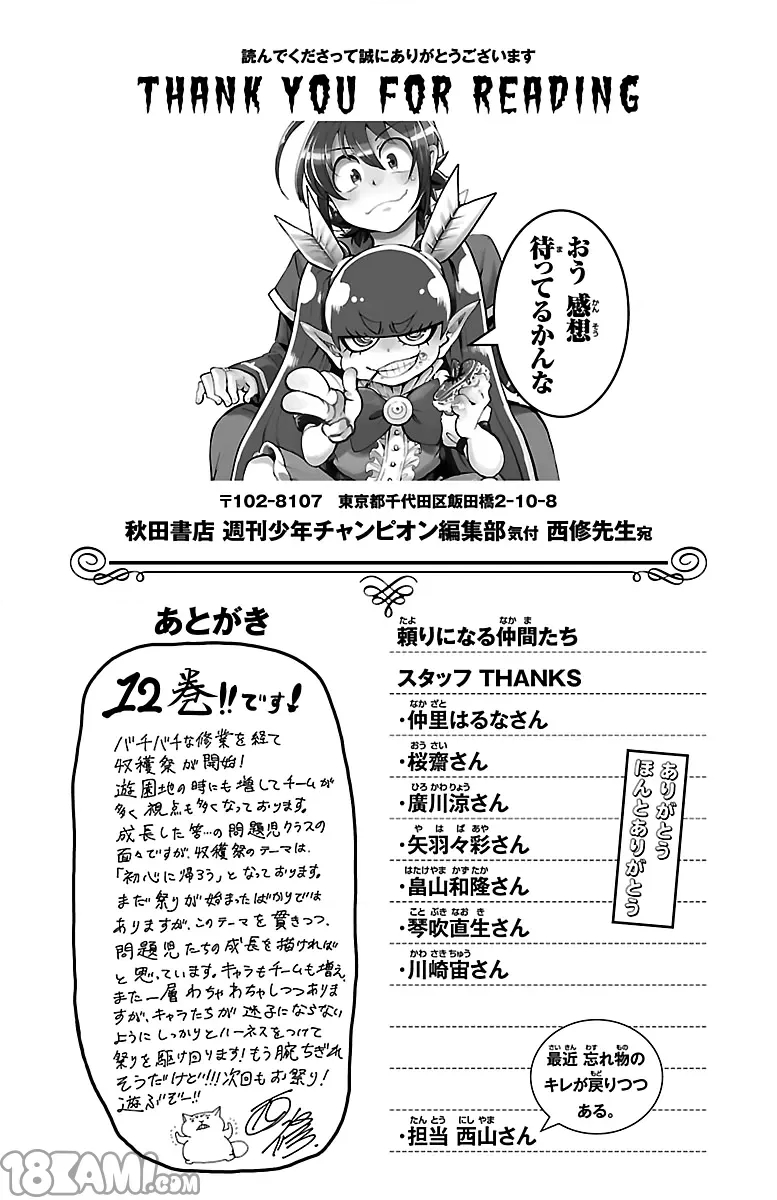 読んでくださって誠にありがとうございます
THANK YOU FOR READING
おう 感想
待ってるかんな
〒102-8107 東京都千代田区飯田橋2-10-8
秋田書店 週刊少年チャンピオン編集部気付 西修先生宛
あとがき
12巻!!です!
バチバチな修業を経て
収穫祭が開始!
遊園地の時にも増してチームが
多く視点も多くなっております。
成長した筈…の問題児クラスの
面々ですが、収穫祭のテーマは、
「初心に帰ろう」となっております。
まだ祭りが始まったばかりでは
ありますが、このテーマを貫きつつ、
問題児たちの成長を描ければ
と思っています。キャラもチームも増え、
また一層わちゃわちゃしつつありま
すが、キャラたちが迷子にならない
ようにしっかりとハーネスをつけて
祭りを駆け回ります!もう腕ちぎれ
そうだけど!!!次回もお祭り!
遊ぶぞー!!
西修
頼りになる仲間たち
スタッフ THANKS
・仲里はるなさん
・桜齋さん
・廣川涼さん
・矢羽々彩さん
・畠山和隆さん
・琴吹直生さん
・川崎宙さん
ありがとう
ほんとありがとう
最近 忘れ物の
キレが戻りつつ
ある。
・担当 西山さん
18KAMI.COM